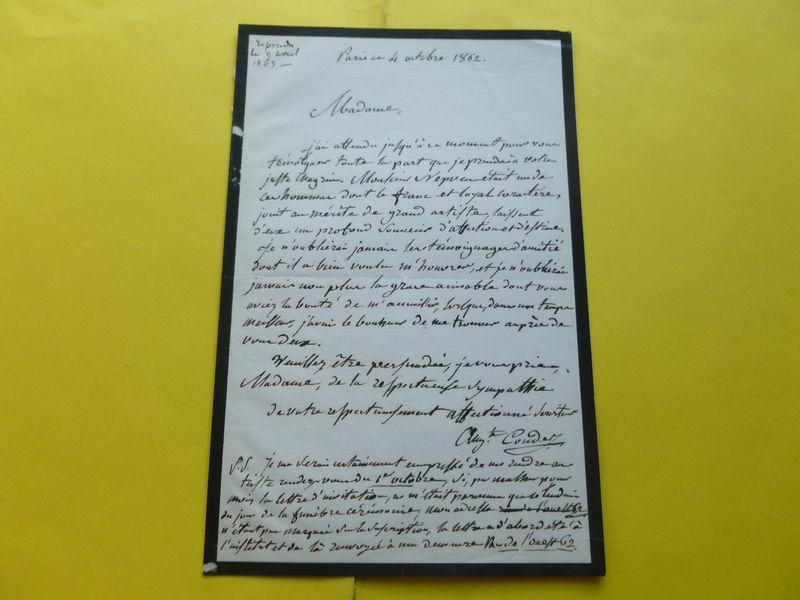 repondu
le 9 avril
1863 —
Paris ce 4 octobre 1862.
Madame,
j'ai attendu jusqu'à ce moment pour vous
témoigner toute la part que je prends à votre
juste chagrin. Monsieur Nepveu était un de
ces hommes dont le franc et loyal caractère,
joint au mérite de grand artiste, laissent
d'eux un profond souvenir d'affection et d'estime.
Je n'oublierai jamais les témoignages d'amitié
dont il a bien voulu m'honorer, et je n'oublierai
jamais non plus la grace aimable dont vous
aviez la bonté de m'accueillir, lorsque, dans un temps
meilleur, j'avais le bonheur de me trouver auprès de
vous deux.
Veuillez être persuadée, je vous prie,
Madame, de la respectueuse sympathie
de votre respectueusement affectionné serviteur
Aug.te Couder
P.S. Je me serais certainement empressé de me rendre au
triste rendez-vous du 1er octobre, si, par malheur pour
moi, la lettre d'invitation, ne m'était parvenue que le lendemain
du jour de la funèbre cérémonie, mon adresse rue de l'ouest 62
n'étant pas marquée sur la suscription, la lettre a d'abord été à
l'institut et de là renvoyée à ma demeure Rue de l'Ouest 62.